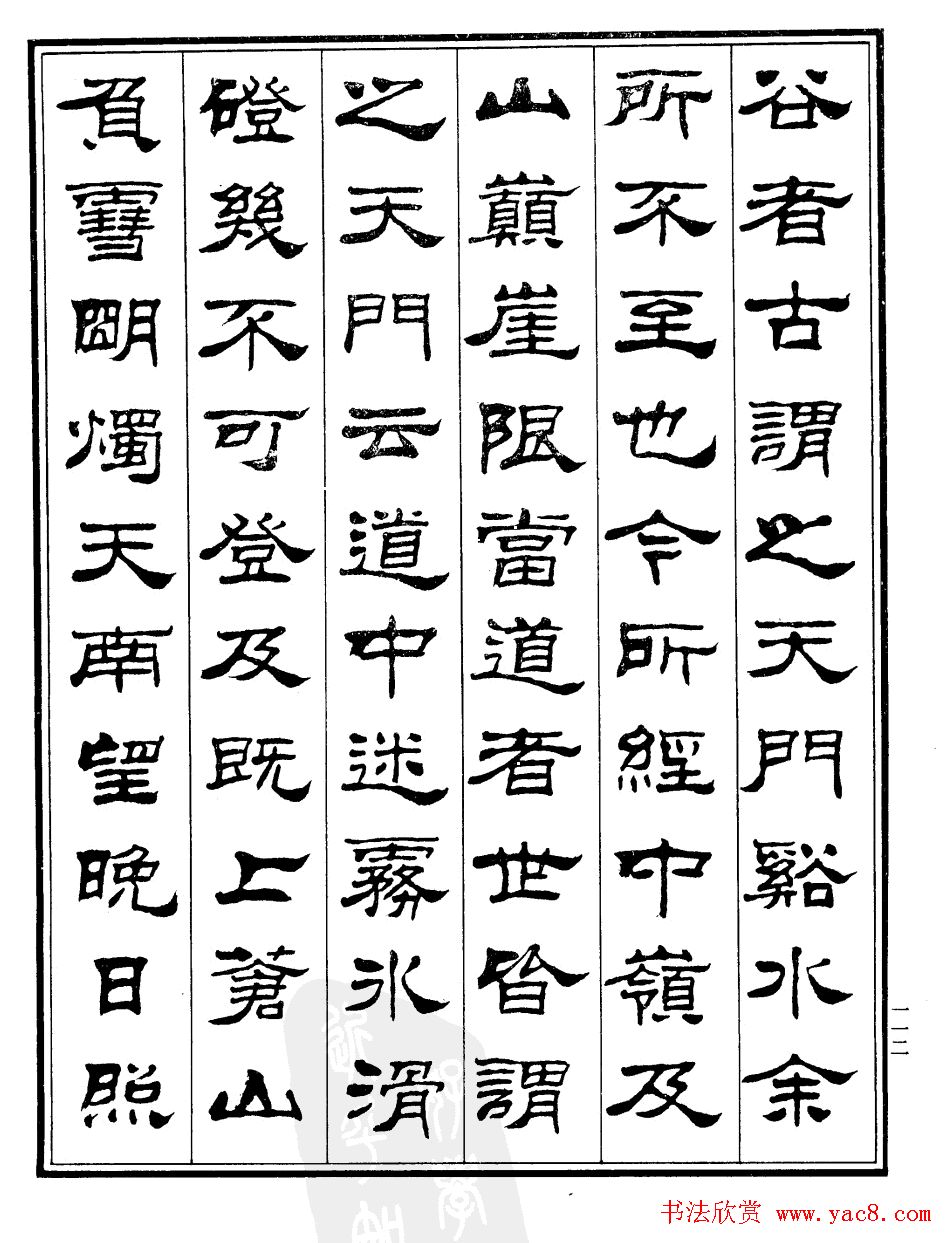 谷者古謂之天門谿水余
所不至也今所經中嶺及
山巔崖限當道者世皆謂
之天門云道中迷霧冰滑
磴幾不可登及既上蒼山
負雪明燭天南望晚日照
一一二
书法欣赏 www.yac8.com